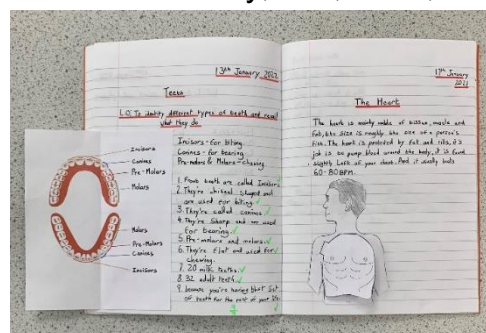 13th January 2022
Teeth
L.O: To identify different types of teeth and recall
what they do.
Incisors - for biting.
Canines - for tearing.
Pre-molars & Molars - chewing
1. Front teeth are called Incisors
2. They're chisel shaped and
are used for biting.
3. They're called canines.
4. They're sharp and are used
for tearing.
5. Pre-molars and molars.
6. They're flat and used for
chewing.
7. 20 milk teeth.
8. 32 adult teeth.
9. because you're having that set
of teeth for the rest of your life.
Incisors
Canines
Pre-Molars
Molars
Molars
Pre-Molars
Canines
Incisors
17th January
The Heart
The heart is mainly made of tissue, muscle and
fat, the size is roughly the size of a person's
fist. The heart is protected by fat and ribs, it's
job is to pump blood around the body, it is found
slightly left of your chest. And it usually beats
60-80 BPM.